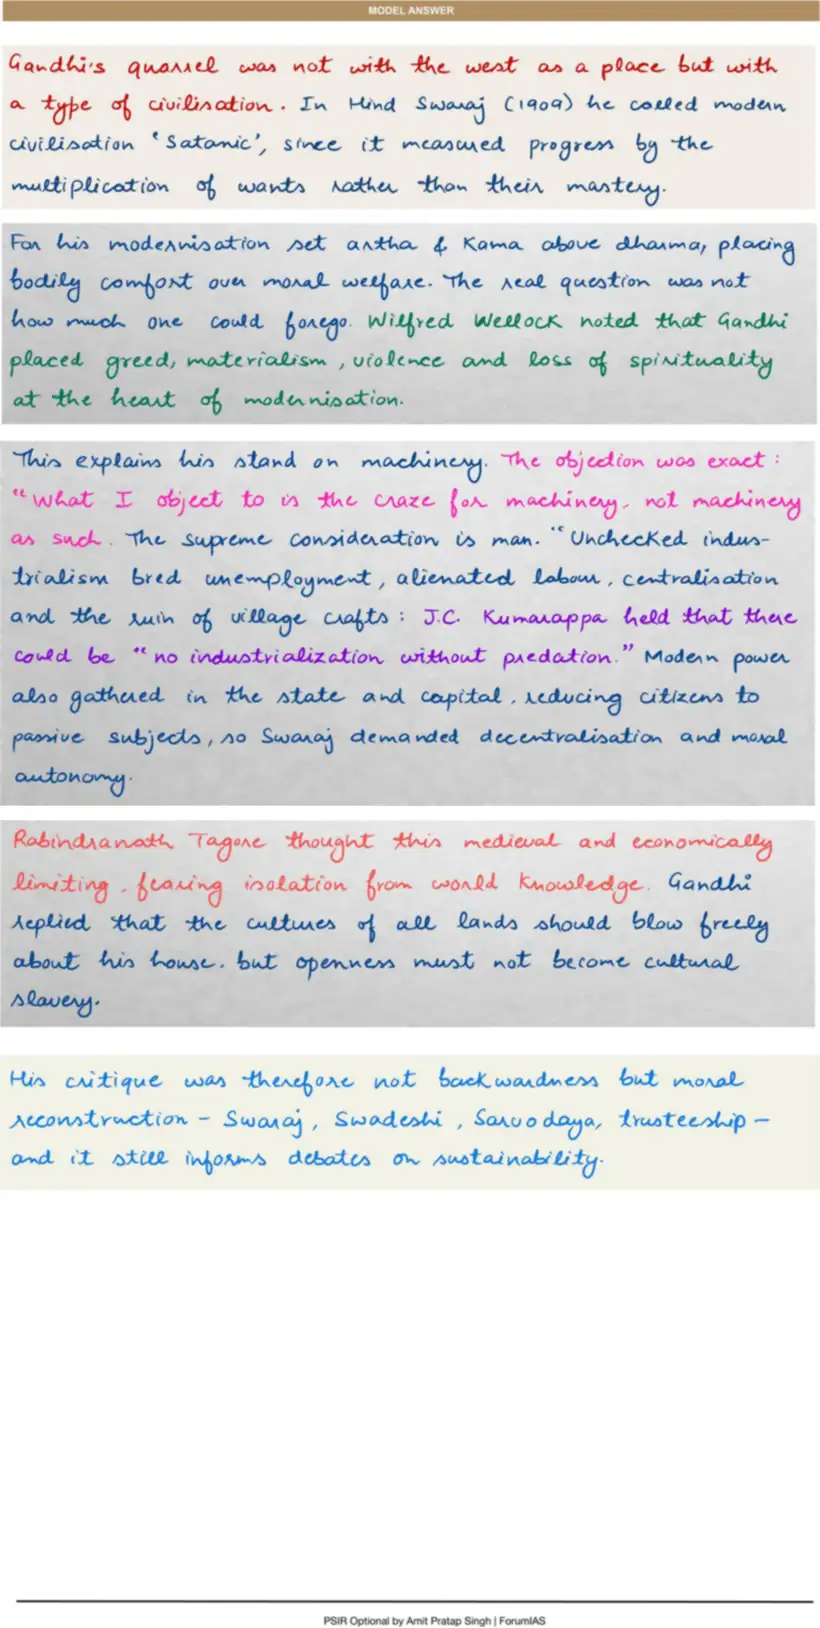 MODEL ANSWER
Gandhi's quarrel was not with the west as a place but with
a type of civilisation. In Hind Swaraj (1909) he called modern
civilisation 'Satanic', since it measured progress by the
multiplication of wants rather than their mastery.
For his modernisation set artha & Kama above dharma, placing
bodily comfort over moral welfare. The real question was not
how much one could forego. Wilfred Wellock noted that Gandhi
placed greed, materialism, violence and loss of spirituality
at the heart of modernisation.
This explains his stand on machinery. The objection was exact:
"What I object to is the craze for machinery, not machinery
as such. The supreme consideration is man. "Unchecked indus-
trialism bred unemployment, alienated labour, centralisation
and the ruin of village crafts: J.C. Kumarappa held that there
could be "no industrialization without predation." Modern power
also gathered in the state and capital, reducing citizens to
passive subjects, so Swaraj demanded decentralisation and moral
autonomy.
Rabindranath Tagore thought this medieval and economically
limiting, fearing isolation from world knowledge. Gandhi
replied that the cultures of all lands should blow freely
about his house, but openness must not become cultural
slavery.
His critique was therefore not backwardness but moral
reconstruction – Swaraj, Swadeshi, Sarvodaya, trusteeship –
and it still informs debates on sustainability.
PSIR Optional by Amit Pratap Singh | ForumIAS